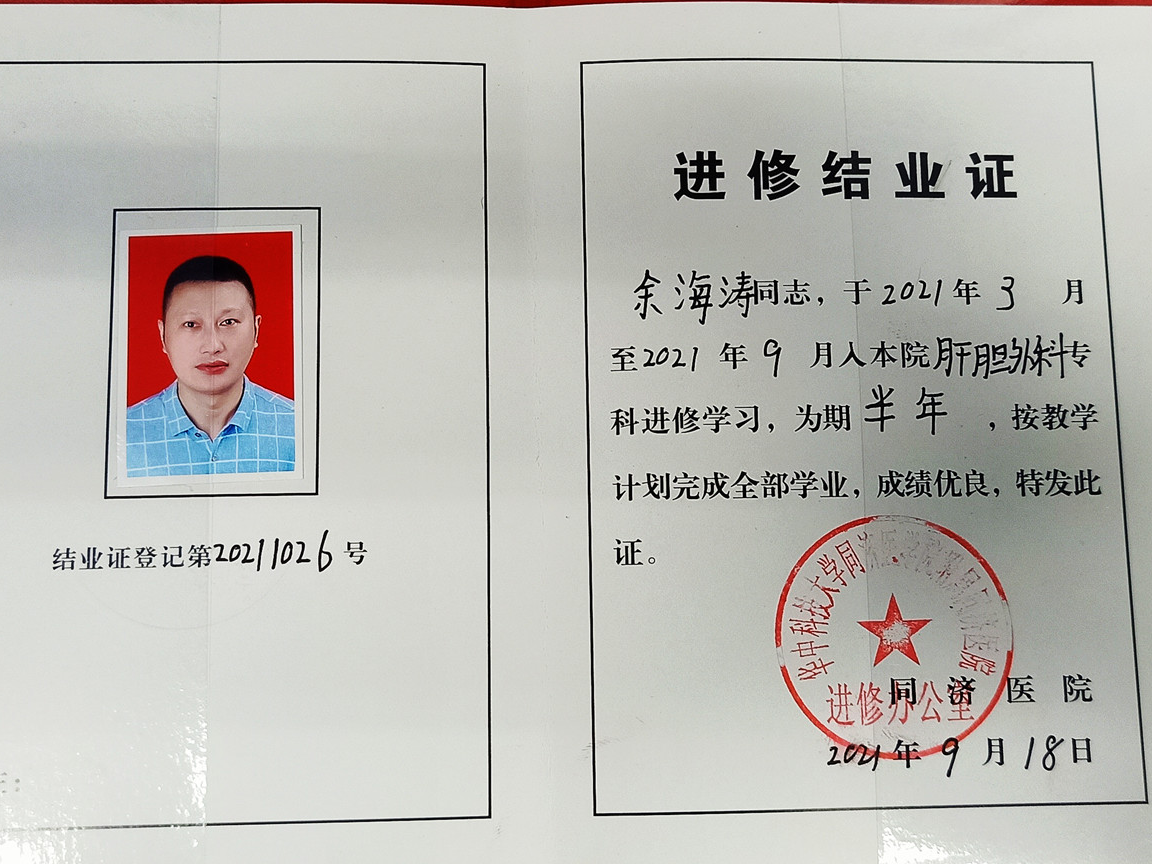 结业证登记第20211026号
进修结业证
余海涛同志，于2021年3月
至2021年9月入本院肝胆外科专
科进修学习，为期半年，按教学
计划完成全部学业，成绩优良，特发此
证。
华中科技大学同济医学院附属同济医院
进修办公室
同济医院
2021年9月18日